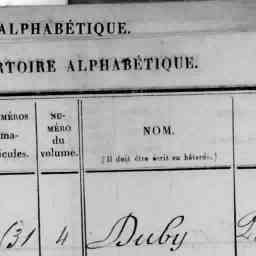 ALPHABÉTIQUE.
RTOIRE ALPHABÉTIQUE.
MÉROS
ma-
icules.
NU-
MÉRO
du
volume.
NOM.
(Il doit être écrit en bâtarde.)
31 4 Duby